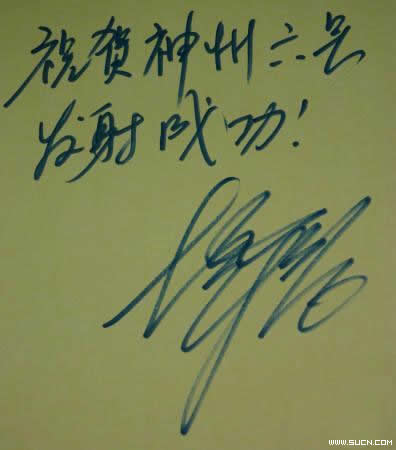 祝贺神州六号
发射成功!
WWW.SUCN.COM